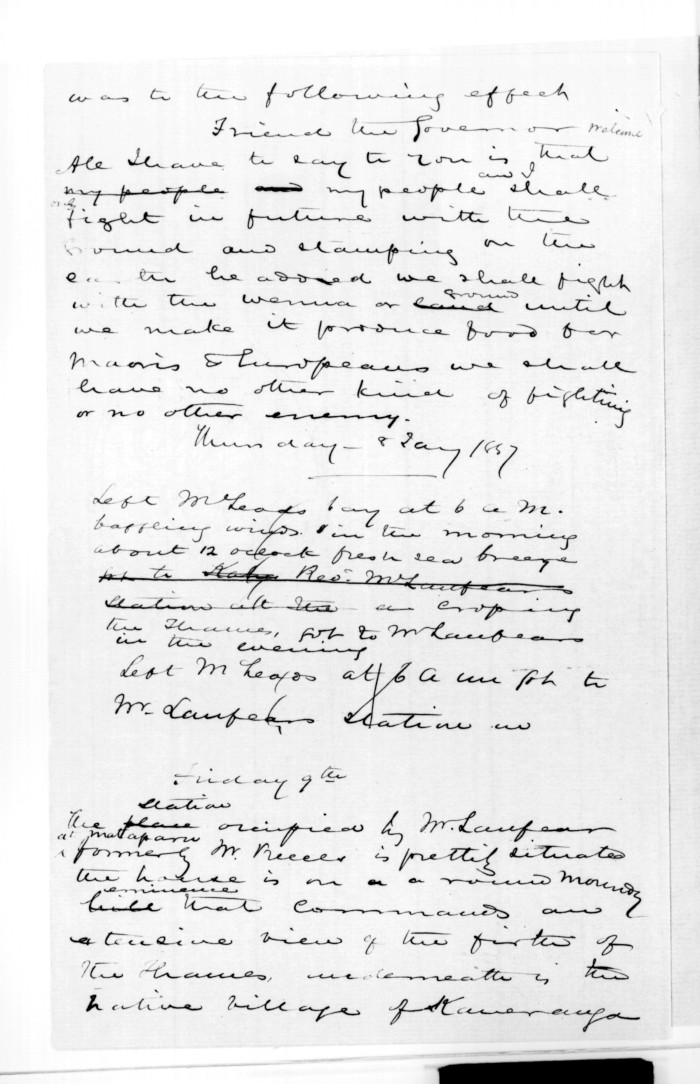 was to the following effect
Friend the Governor welcome
All I have to say to you is that
my people and my people and I shall
only fight in future with the
ground and stamping on the
earth he added we shall fight
with the wenua or land ground until
we make it produce food for
Maoris & Europeans we shall
have no other kind of fighting
or no other enemy.
Thursday - 8 Jany 1857
Left McLeags bay at 6 a M.
baffling winds in the morning
about 12 oclock fresh sea breeze
got to Revd. Mr Lanfears
station at the in croping
the Thames, got to Mr Lanfears
in the evening
Left McLeags at 6 a m got to
Mr. Lanfears station in
Friday 9th
station
The place occupied by Mr. Lanfear
at mataparu
formerly Mr. Preeces is prettily situated
the house is on a a round Moundy
eminence
hill that commands an
extensive view of the firth of
the Thames, underneath is the
native village of Kaueranga